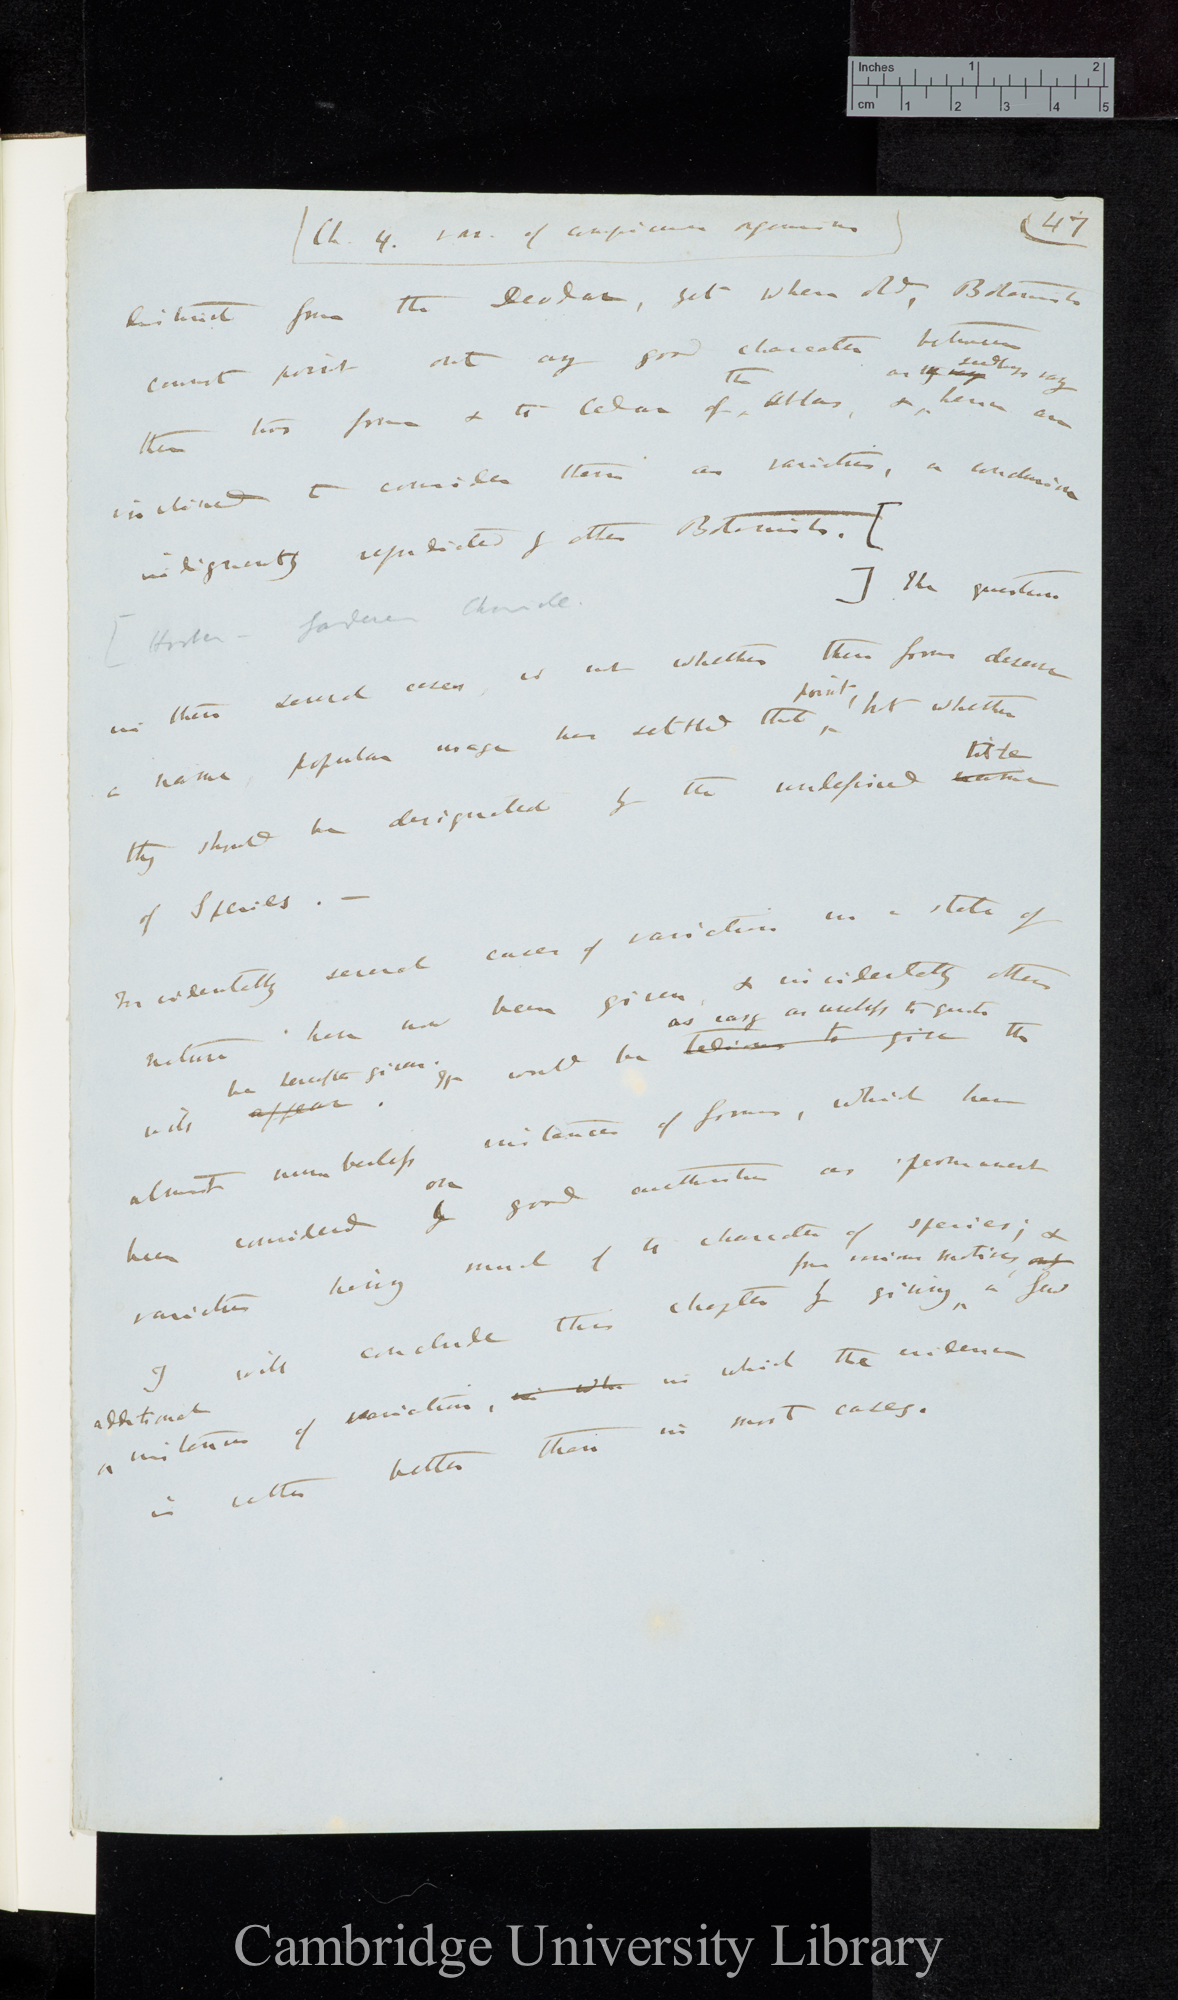 Inches 1 2
cm 1 2 3 4 5
(Ch. 4. var. of conspicuous organisms) (47
distinct from the Deodar, yet when old, Botanists
cannot point out any good character between
the as endless say
these two forms & the Cedar of Atlas, & hence are
inclined to consider them as varieties, a conclusion
indignantly repudiated by other Botanists. [
[Hooker - Gardeners Chronicle. ] The question
in these several cases, is not whether these forms deserve
point
a name, popular usage has settled that, but whether
title
they should be designated by the undefined name
of Species. —
Incidentally several cases of variation in a state of
nature have now been given, & incidentally others
be hereafter given. as easy as useless to quote
will appear. It would be tedious to give the
almost numberless instances of forms, which have
on
been considered by good authorities as permanent
varieties having much of the character of species; &
from various motives, out
I will conclude this chapter by giving a few
additional
instances of variation, in whi in which the evidence
is rather better than in most cases.
Cambridge University Library